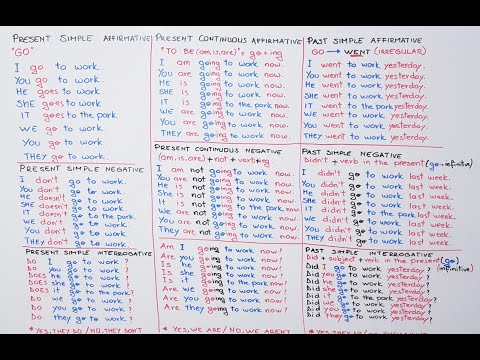 PRESENT SIMPLE AFFIRMATIVE
"GO"
I go to work.
YOU go to work.
HE goes to work.
SHE goes to work.
IT goes to work.
WE go to work.
YOU go to work.
THEY go to work.
PRESENT CONTINUOUS AFFIRMATIVE
"TO BE (am, is, are)" + go + ing
I am going to work now.
YOU are going to work now.
HE is going to work now.
SHE is going to work now.
IT is going to the park now.
WE are going to work now.
YOU are going to work now.
THEY are going to work now.
PAST SIMPLE AFFIRMATIVE
GO → WENT (IRREGULAR)
I went to work yesterday.
YOU went to work yesterday.
HE went to work yesterday.
SHE went to work yesterday.
IT went to the park yesterday.
WE went to work yesterday.
YOU went to work yesterday.
THEY went to work yesterday.
PRESENT SIMPLE NEGATIVE
I don't go to work.
YOU don't go to work.
HE doesn't go to work.
SHE doesn't go to work.
IT doesn't go to the park.
WE don't go to work.
YOU don't go to work.
THEY don't go to work.
PRESENT CONTINUOUS NEGATIVE
(am, is, are) + not + verb + ing
I am not going to work now.
YOU are not going to work now.
HE is not going to work now.
SHE is not going to work now.
IT is not going to the park now.
WE are not going to work now.
YOU are not going to work now.
THEY are not going to work now.
PAST SIMPLE NEGATIVE
didn't + verb in the present (go - infinitive)
I didn't go to work last week.
YOU didn't go to work last week.
HE didn't go to work last week.
SHE didn't go to work last week.
IT didn't go to the park last week.
WE didn't go to work last week.
YOU didn't go to work last week.
THEY didn't go to work last week.
PRESENT SIMPLE INTERROGATIVE
Do I go to work ?
DO you go to work ?
DOES he go to work ?
DOES she go to work ?
DOES it go to the park ?
Do we go to work ?
Do you go to work ?
Do they go to work ?
* YES, THEY DO / NO, THEY DON'T
Am I going to work now ?
Are you going to work now ?
Is he going to work now ?
Is she going to work now ?
Is it going to the park now ?
Are we going to work now ?
Are you going to work now ?
Are they going to work now ?
* YES, WE ARE / NO, WE AREN'T
PAST SIMPLE INTERROGATIVE
Did + subject + verb in the present (go) (infinitive)
Did I go to work yesterday ?
Did you go to work yesterday ?
Did he go to work yesterday ?
Did she go to work yesterday ?
Did it go to the park yesterday ?
Did we go to work yesterday ?
Did you go to work yesterday ?
Did they go to work yesterday ?